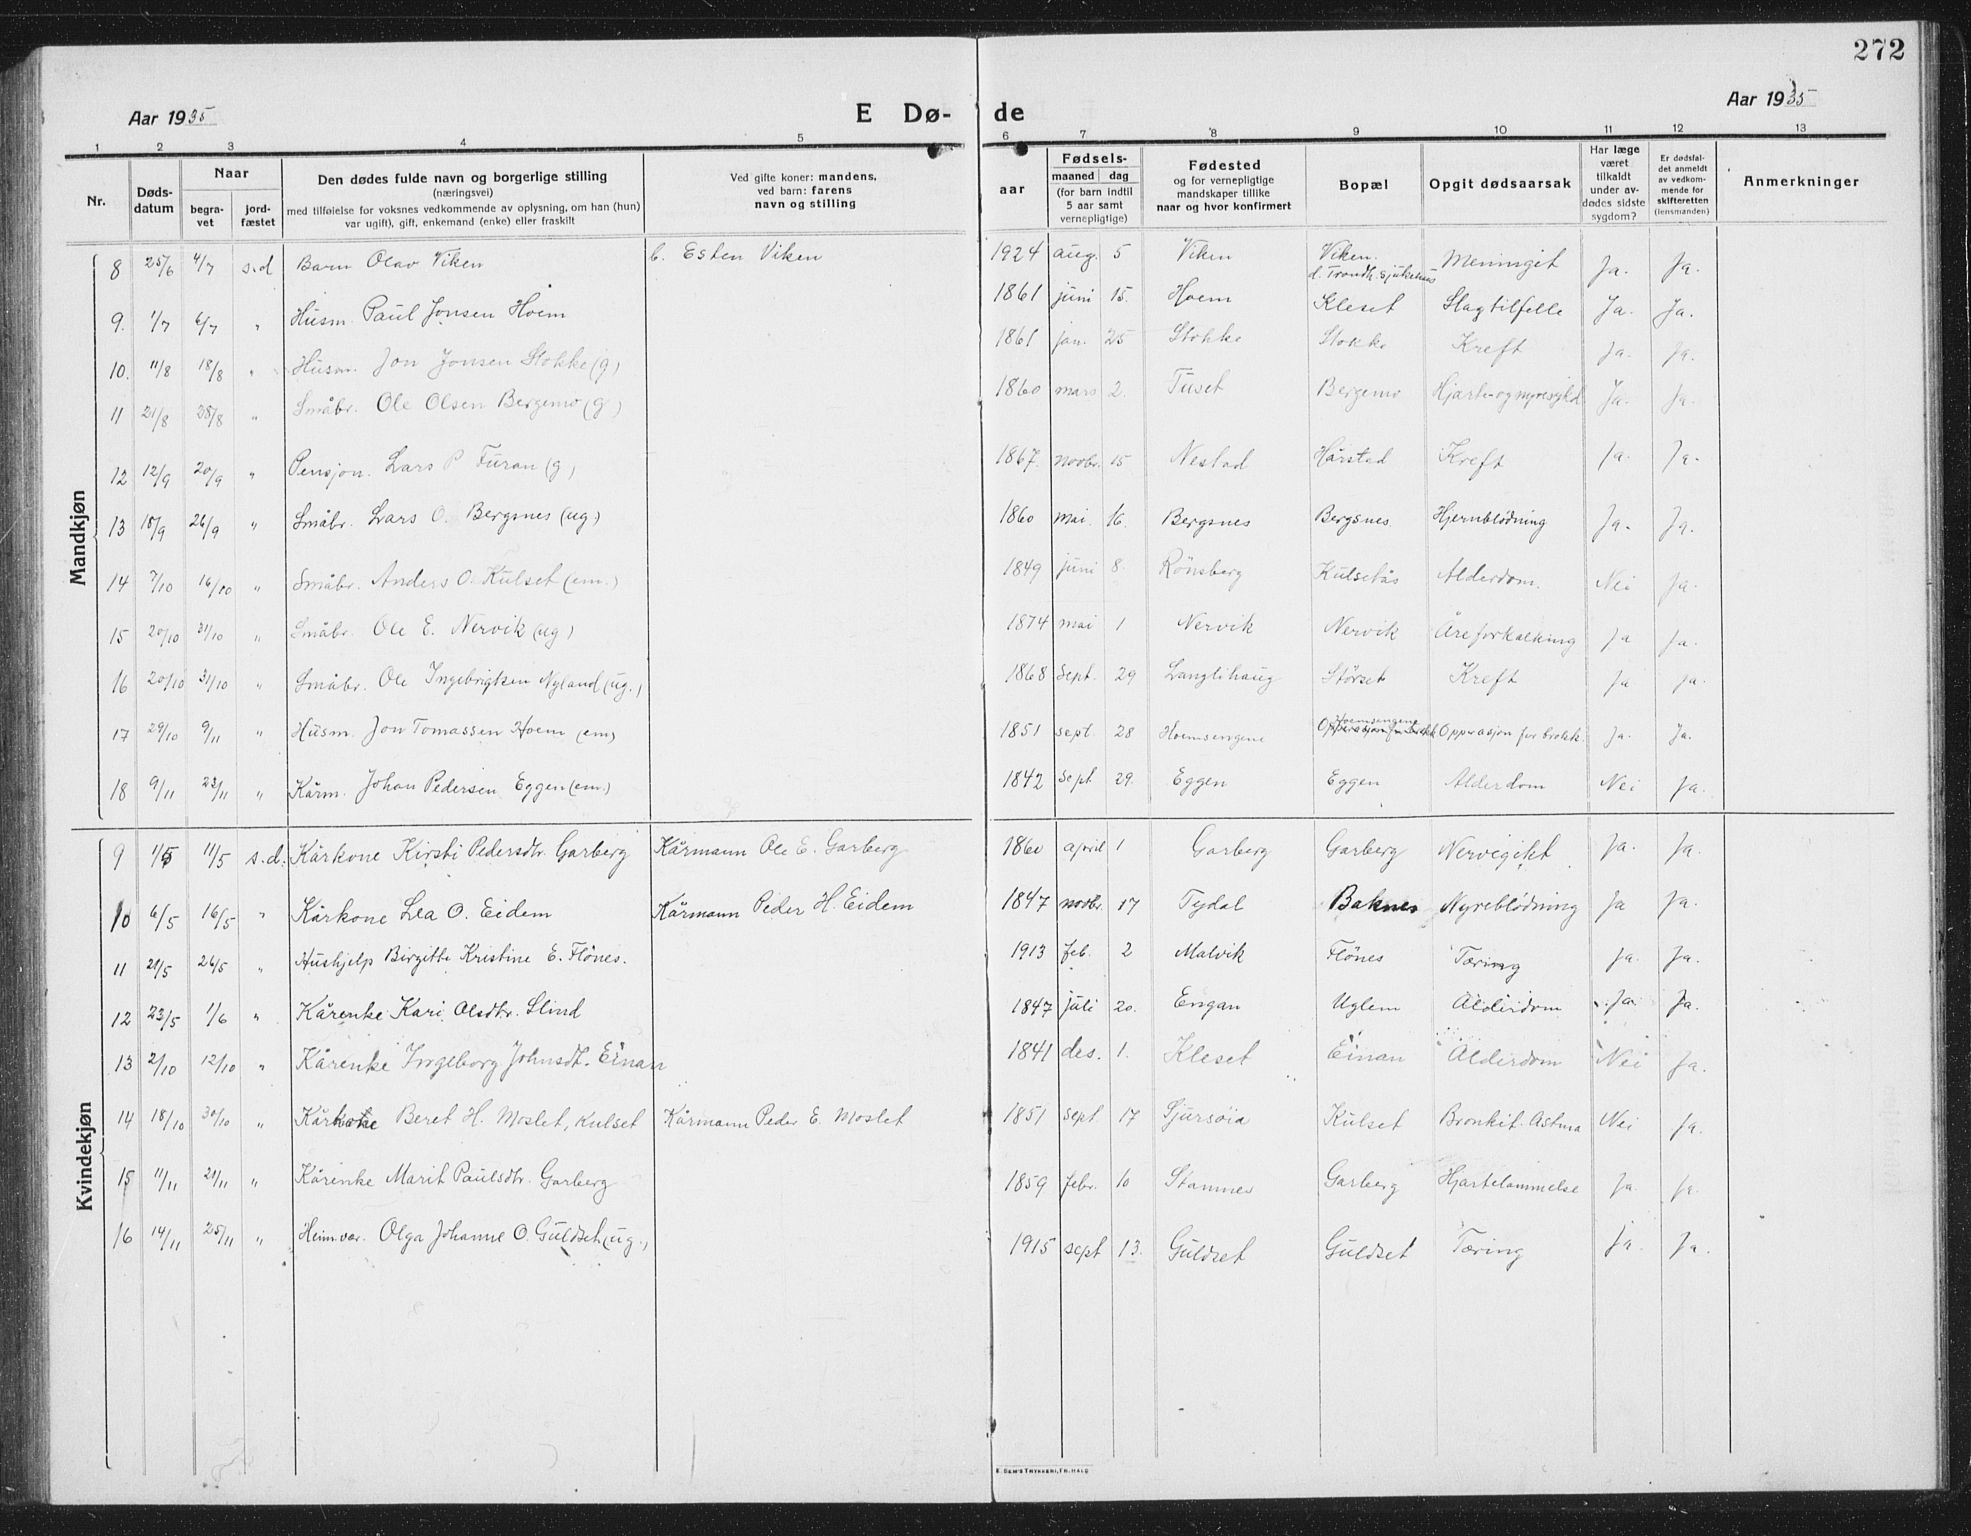 272
Aar 1935
E Dø-
de
Aar 1935
1 2 3 4 5 6 7 8 9 10 11 12 13
Nr.
Døds-
datum
Naar
begra-
vet
jord-
fæstet
Den dødes fulde navn og borgerlige stilling
(næringsvei)
med tilføielse for voksnes vedkommende av oplysning, om han (hun)
var ugift), gift, enkemand (enke) eller fraskilt
Ved gifte koner: mandens,
ved barn: farens
navn og stilling
aar
Fødsels-
maaned dag
(for barn indtil
5 aar samt
vernepligtige)
Fødested
og for vernepligtige
mandskaper tillike
naar og hvor konfirmert
Bopæl
Opgit dødsaarsak
Har læge
været
tilkaldt
under av-
dødes sidste
sygdom?
Er dødsfal-
det anmeldt
av vedkom-
mende for
skifteretten
(lensmanden)
Anmerkninger
Mandkjøn
8 25/6 4/7 s.d Barn Olav Viken b. Esten Viken 1924 aug. 5 Viken Viken. d. Trondh. sjukehus Meningit Ja. Ja.
9. 1/7 6/7 " Husm. Paul Jonsen Hoem 1861 juni 15. Hoem Kleset Slagtilfelle Ja. Ja.
10. 11/8 18/8 " Husm. Jon Jonsen Stokke (g) 1861 jan. 25 Stokke Stokke Kreft Ja. Ja.
11 21/8 28/8 " Småbr. Ole Olsen Bergemo (g) 1860 mars 2. Tuset Bergemo Hjarte-og nyresykd Ja. Ja.
12 12/9 20/9 " Pensjon. Lars P Furan (g) 1867. novbr. 15 Nestad Hårstad Kreft Ja. Ja.
13 18/9 26/9 " Småbr. Lars O. Bergsnes (ug) 1860 mai. 16. Bergsnes Bergsnes Hjernblödning Ja. Ja.
14 7/10 16/10 " Småbr. Anders O. Kulset (em.) 1849 juni 8. Rönsberg Kulsetås Alderdom. Nei Ja.
15 20/10 31/10 " Småbr. Ole E. Nervik (ug) 1874 mai 1 Nervik Nervik Åreforkalking Ja Ja.
16 20/10 31/10 " Småbr. Ole Ingebrigtsen Nyland (ug.) 1868 sept. 29 Langlihaug Störset Kreft Ja Ja.
17 29/10 9/11 " Husm. Jon Tomassen Hoem (em) 1851 sept. 28 Hoemsengene Hoemsengene Opperasjon for brokk. Ja. Ja.
18 9/11 23/11 " Kårm. Johan Pedersen Eggen (em.) 1842 sept 29. Eggen Eggen Alderdom Nei Ja.
Kvindekjøn
9 1/5 11/5 s.d. Kårkone Kirsti Pedersdtr. Garberg Kårmann Ole E. Garberg 1860 april 1 Garberg Garberg Nervegikt Ja. Ja.
10 6/5 16/5 " Kårkone Lea O. Eidem Kårmann Peder H. Eidem 1847 novbr. 17 Tydal Baknes Nyreblödning Ja Ja.
11 21/5 26/5 " Hushjelp Birgitte Kristine E. Flönes. 1913 feb. 2 Malvik Flönes Tæring Ja. Ja.
12 23/5 1/6 " Kårenke Kari Olsdtr. Slind 1847 juli 20. Engan Uglem Alderdom Ja. Ja.
13 2/10 12/10 " Kårenke Ingeborg Johnsdt. Einan 1841 des. 1. Kleset Einan Alderdom Nei Ja.
14 18/10 30/10 " Kårkone Beret H. Moslet, Kulset Kårmann Peder E. Moslet 1851 sept 17 Sjursöia Kulset Bronkit. Astma Nei Ja.
15 11/11 21/11 " Kårenke Marit Paulsdtr. Garberg 1859 febr. 10 Stamnes Garberg Hjartelammelse Ja. Ja.
16 14/11 25/11 " Heimvær. Olga Johanne O. Guldset (ug.) 1915 sept 13. Guldset Guldset Tæring Ja. Ja.